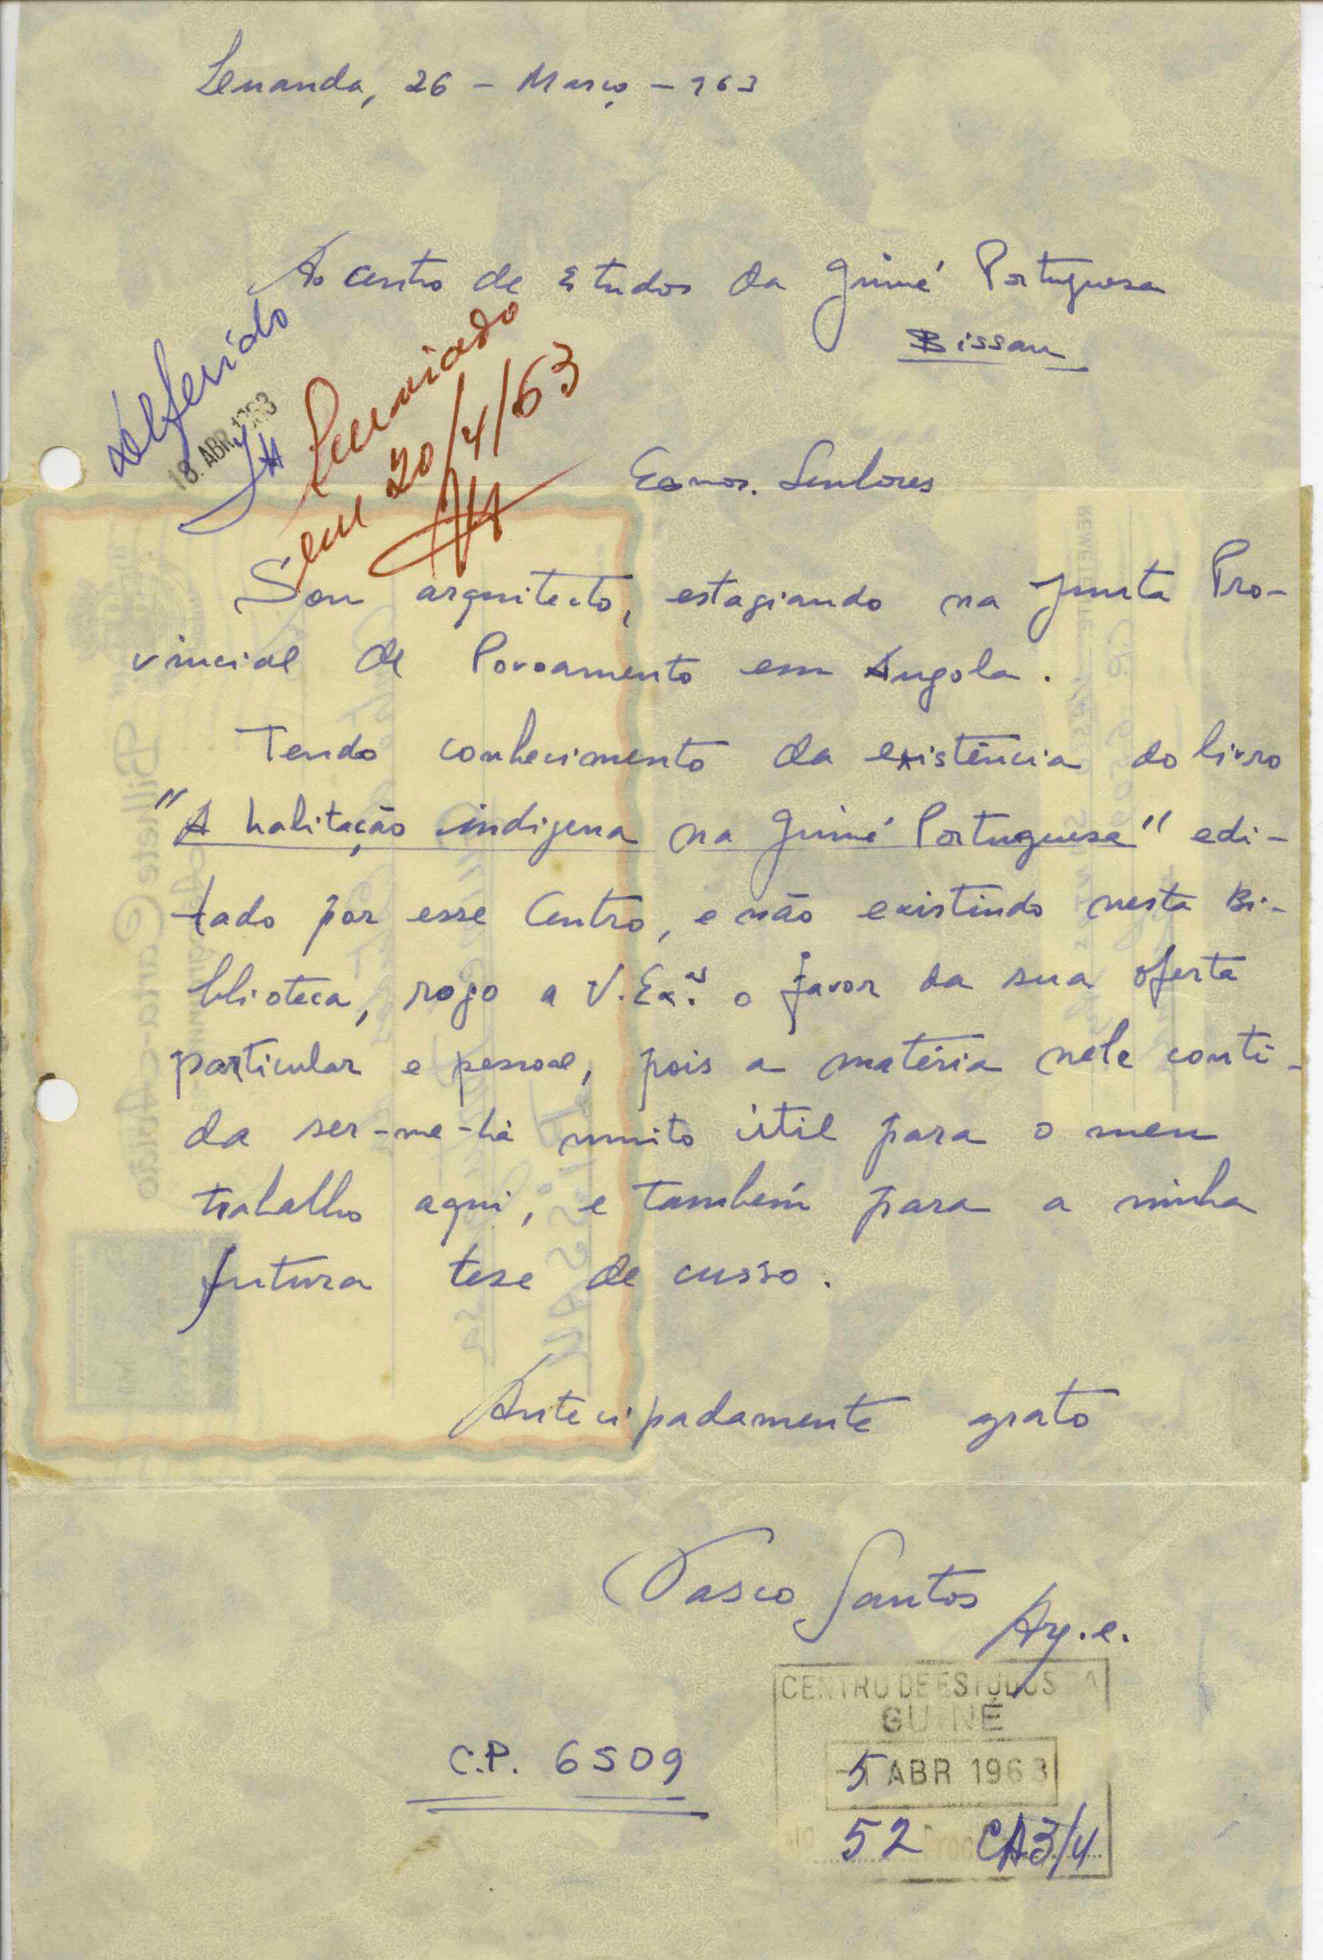 Luanda, 26 - Março - 963
Ao Centro de Estudos da Guiné Portuguesa
Bissau
deferido
18. ABR. 1963
Enviado
em 20/4/63
Exmos. Senhores
Sou arquitecto, estagiando na Junta Pro-
vincial de Povoamento em Angola.
Tendo conhecimento da existência do livro
"A habitação indígena na Guiné Portuguesa" edi-
tado por esse Centro, e não existindo nesta Bi-
blioteca, rogo a V. Ex.ª o favor da sua oferta
particular e pessoal, pois a matéria nele conti-
da ser-me-há muito útil para o meu
trabalho aqui, e também para a minha
futura tese de curso.
Antecipadamente grato
Vasco Santos
CENTRO DE ESTUDOS DA
GUINÉ
C.P. 6509
5 ABR 1963
52 CA3/4